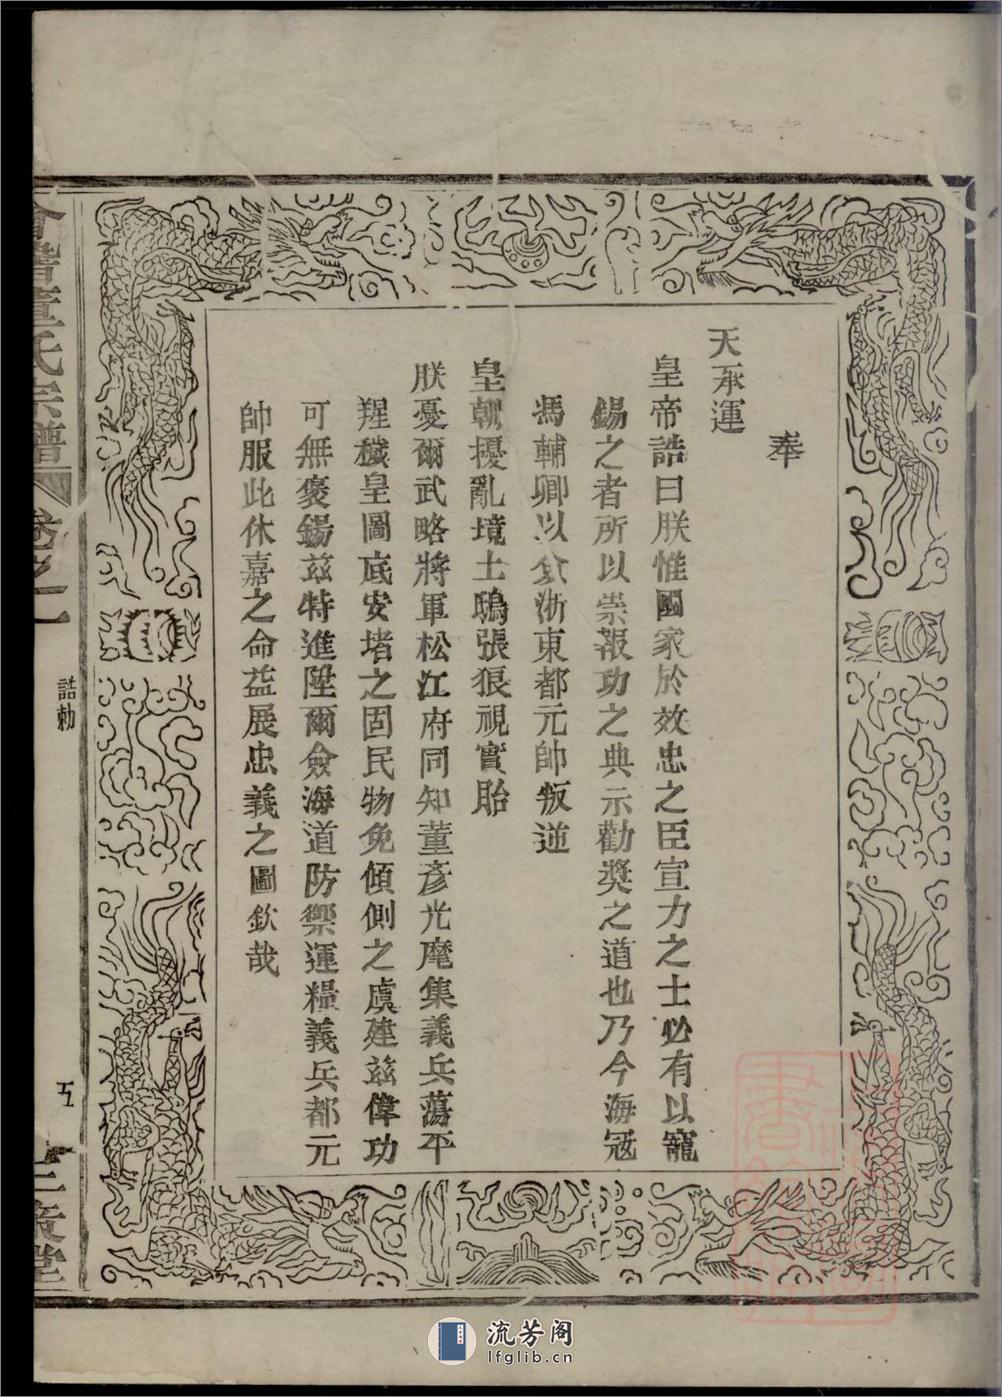 奉
天承運
皇帝誥曰朕惟國家於效忠之臣宣力之士必有以寵
錫之者所以崇報功之典示勸獎之道也乃今海冦
馮輔卿以僉浙東都元帥叛逆
皇朝擾亂境土鴟張狼視實貽
朕憂爾武略將軍松江府同知董彥光麾集義兵蕩平
羶穢皇圖底安堵之固民物免傾側之虞建兹偉功
可無褒錫兹特進陞爾僉海道防禦運糧義兵都元
帥服此休嘉之命益展忠義之圖欽哉
會稽董氏宗譜
卷之一
誥勅
五
三策堂
流芳阁
lfglib.cn